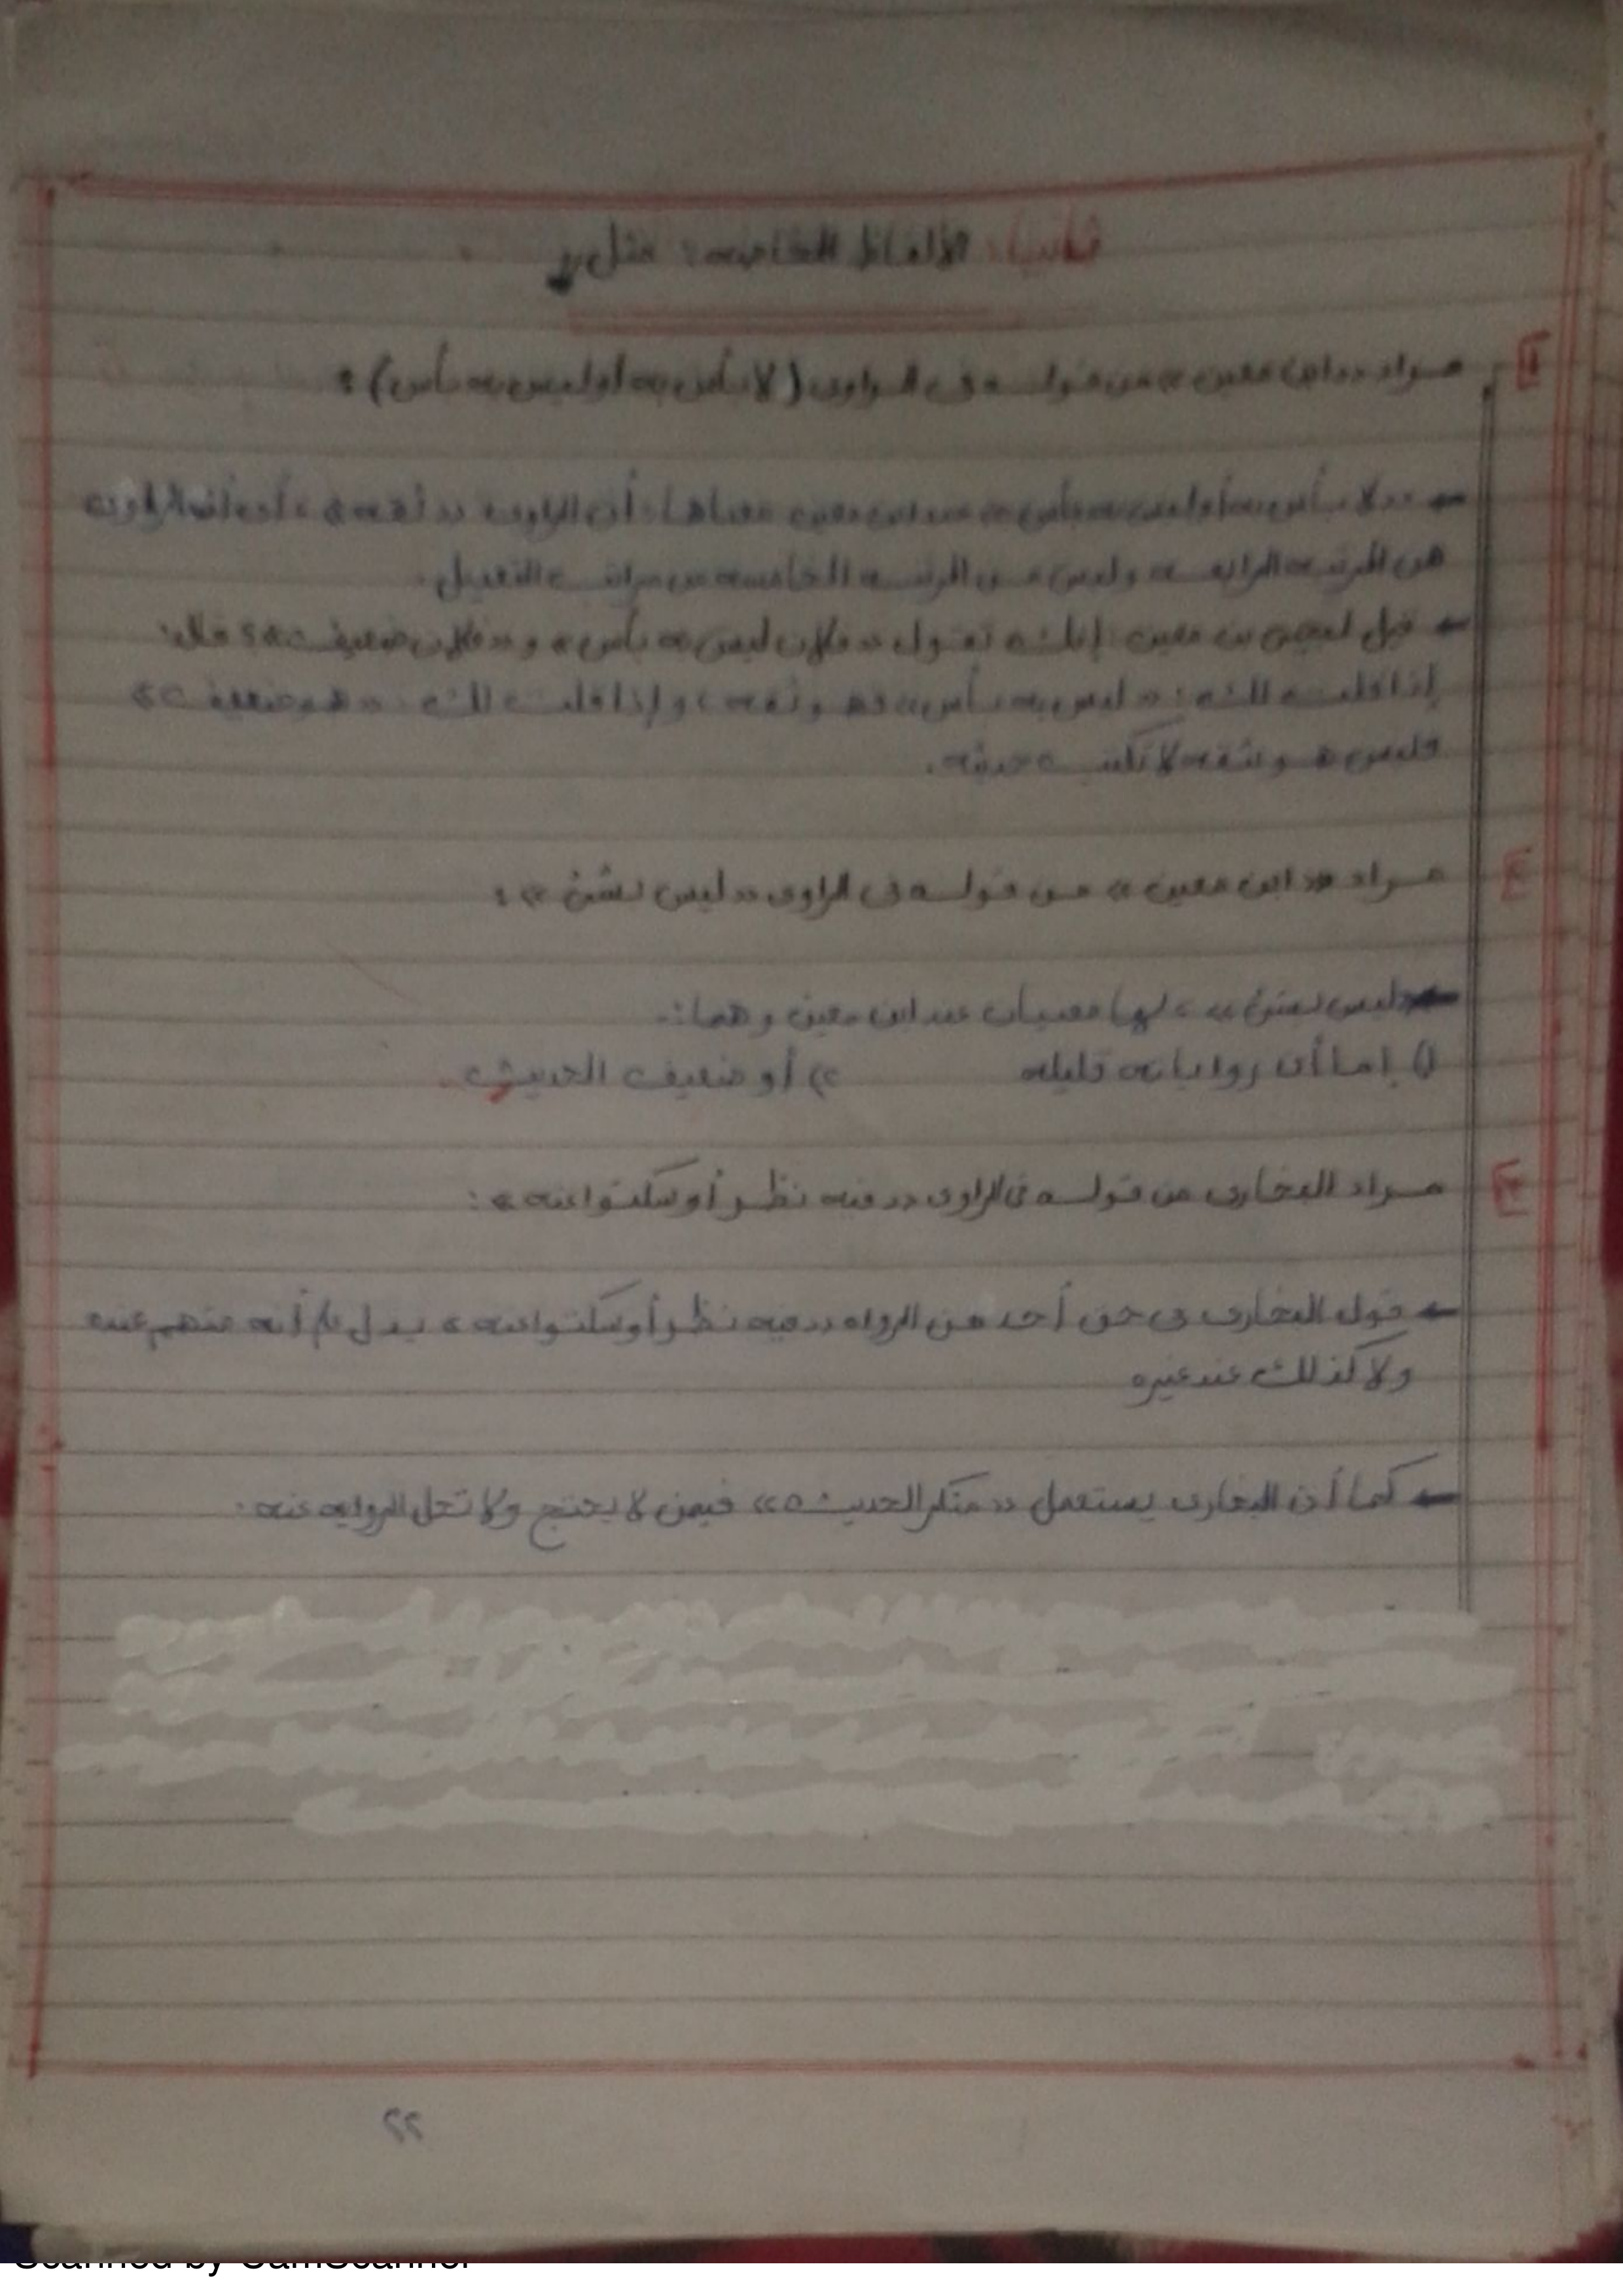 ثانيا: الألفاظ الخاصه: مثل
١ مراد «ابن معين» من قوله فى الراوى (لا بأس به أو ليس به بأس):
← «لا بأس به أو ليس به بأس» عند ابن معين معناها: أن الراوى «ثقه»
من المرتبه الرابعه وليس من المرتبه الخامسه من مراتب التعديل.
← قيل ليحيى بن معين: إنك تقول «فلان ليس به بأس» و«فلان ضعيف»؟ قال:
إذا قلت لك: «ليس به بأس» فهو ثقه، وإذا قلت لك: «هو ضعيف»
فليس هو بثقه لا تكتب حديثه.
٢ مراد «ابن معين» من قوله فى الراوى «ليس بشئ»:
← «ليس بشئ» لها معنيان عند ابن معين وهما:-
١) إما أن رواياته قليله ٢) أو ضعيف الحديث.
٣ مراد البخارى من قوله فى الراوى «فيه نظر أو سكتوا عنه»:
← قول البخارى فى حق أحد من الرواه «فيه نظر أو سكتوا عنه» يدل على أنه متهم عنده
ولا كذلك عند غيره
← كما أن البخارى يستعمل «منكر الحديث» فيمن لا يحتج ولا تحل الروايه عنه.
٢٢
Scanned by CamScanner